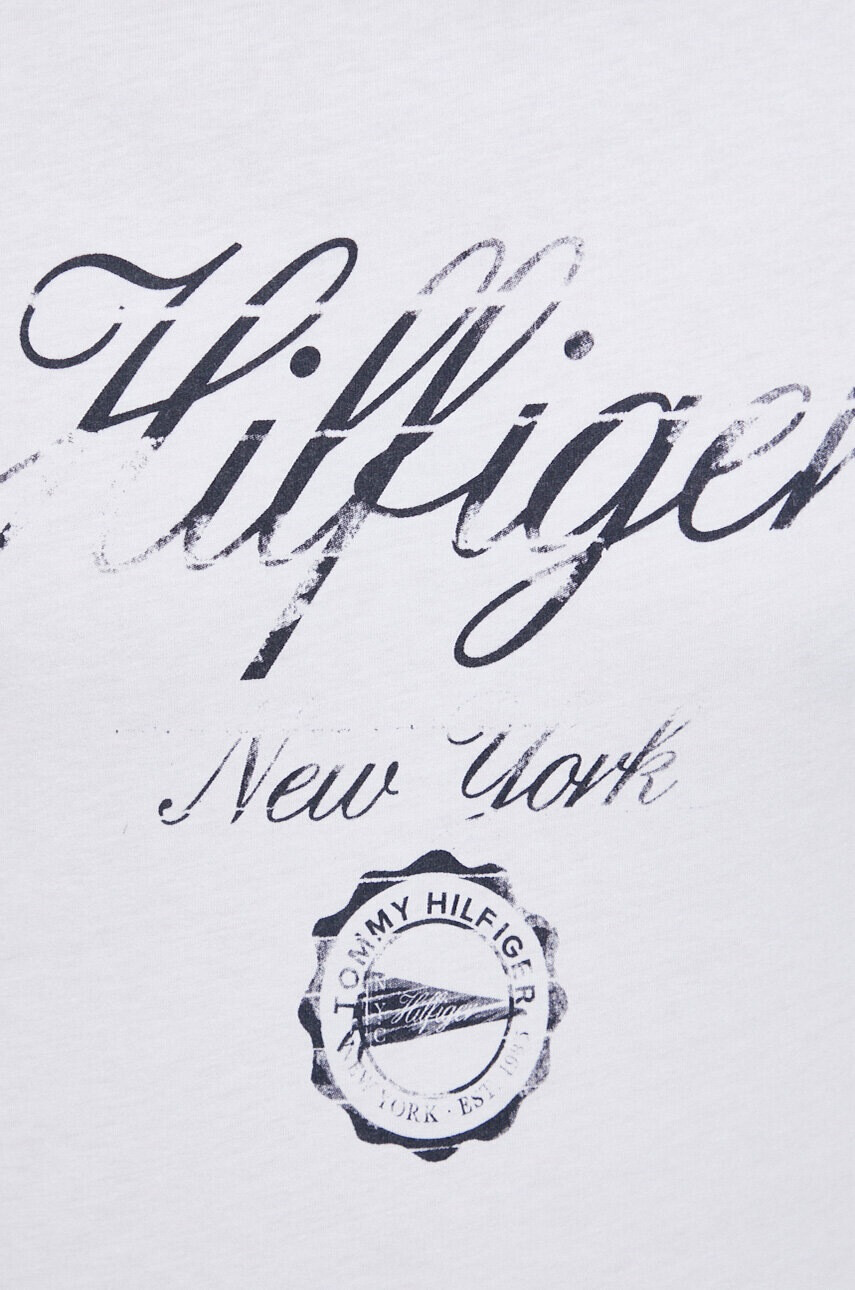 Hilfiger
New York
TOMMY HILFIGER
NYC
Hilfiger
NEW YORK · EST. 1985